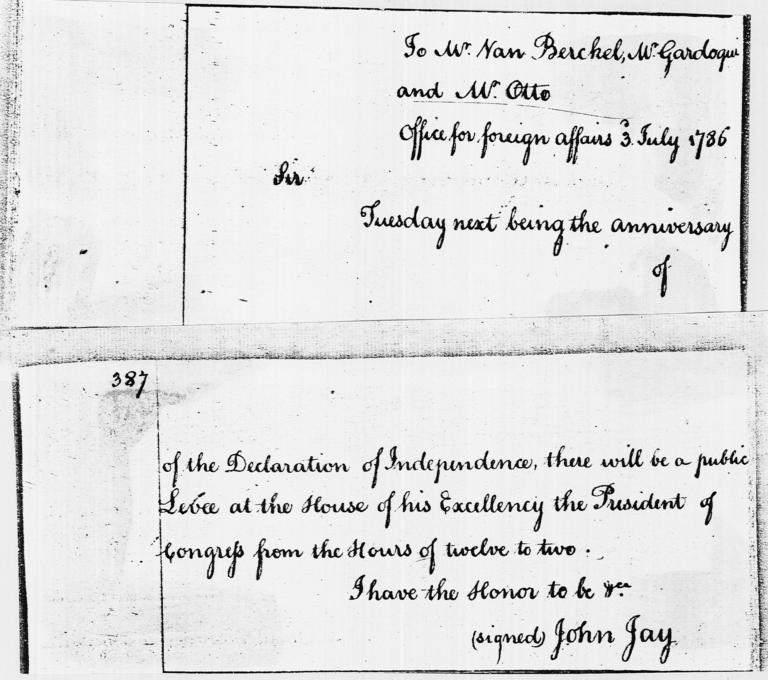 To Mr. Van Berckel, Mr. Gardoqui
and Mr. Otto
Office for foreign affairs 3 July 1786
Sir
Tuesday next being the anniversary
of
387
of the Declaration of Independence, there will be a public
Levée at the House of his Excellency the President of
Congress from the Hours of twelve to two.
I have the Honor to be &ca
(signed) John Jay